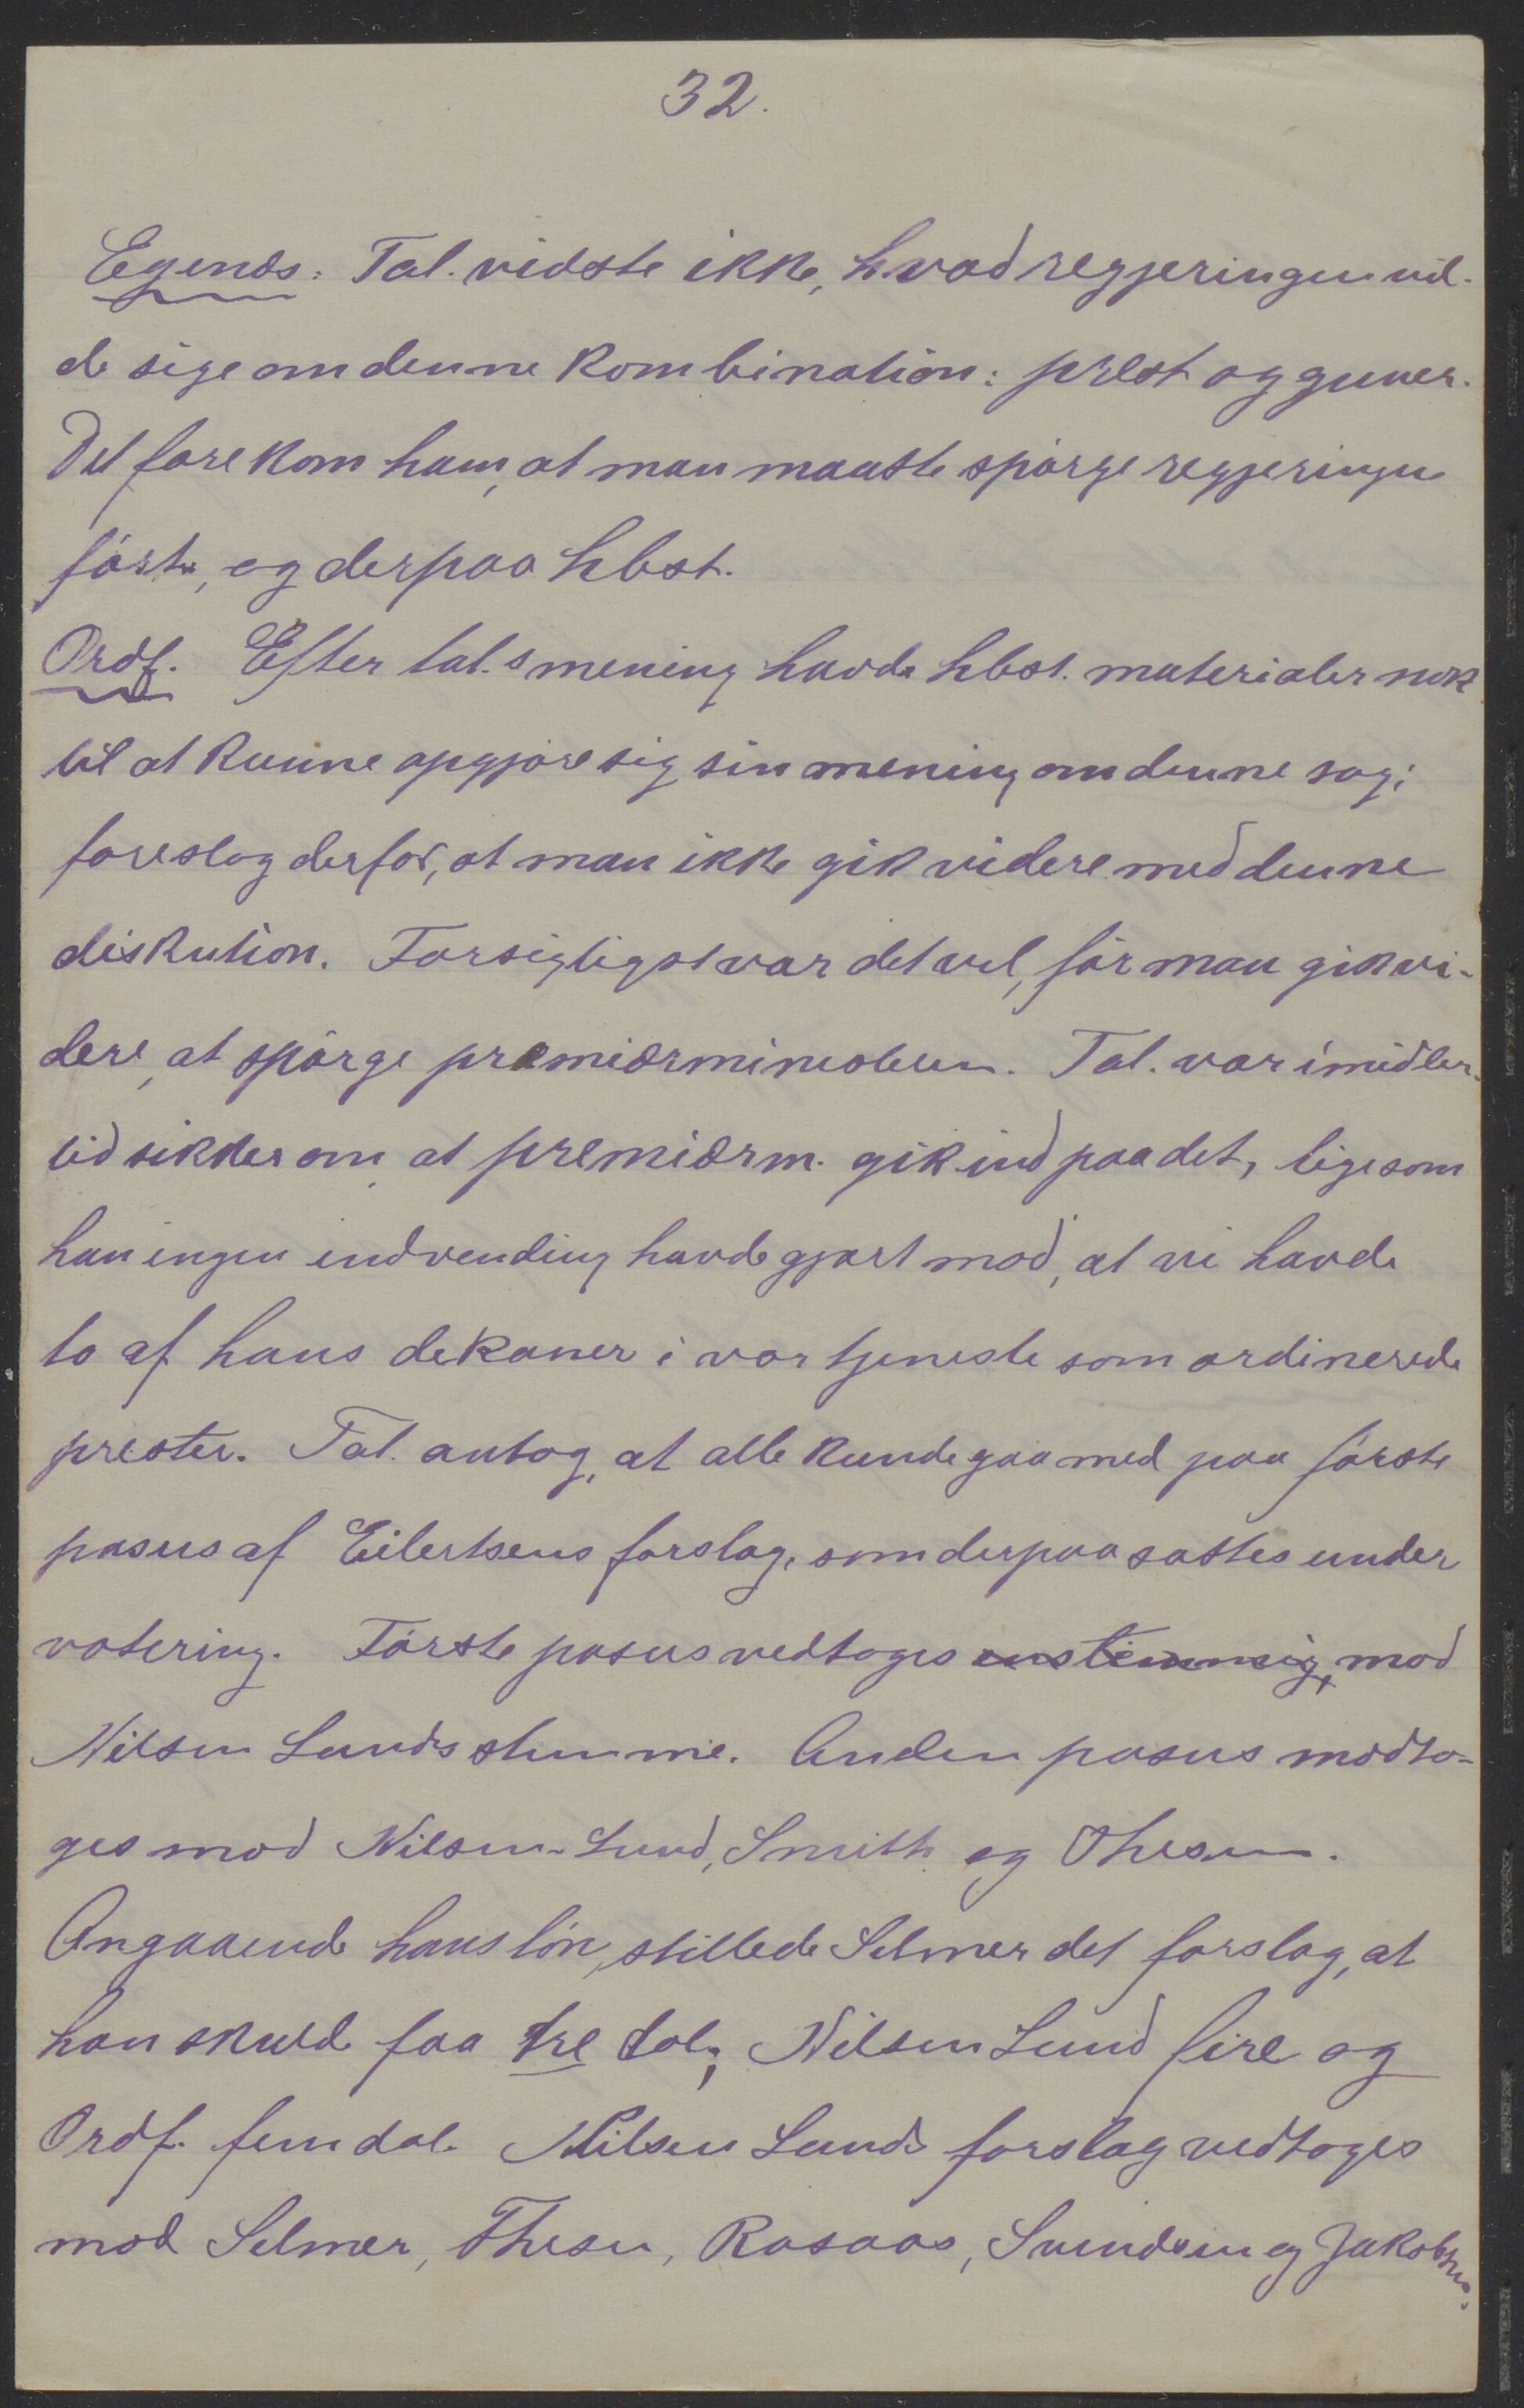 32.
Egenæs: Tal. vidste ikke, hvad regjeringen vil-
de sige om denne kombination: prest og guver.
Det forekom ham, at man maatte spørge regjeringen
først, og derpaa hbst.
Ordf. Efter tal.s mening havde hbst. materialer nok
til at kunne opgjøre sig sin mening om denne sag;
foreslog derfor, at man ikke gik videre med denne
diskution. Forsigtigst var det vel, før man gik vi-
dere, at spørge premiærministeren. Tal. var imidler-
tid sikker om at premiærm. gik ind paa det, ligesom
han ingen indvending havde gjort mod, at vi havde
to af hans dekaner i vor tjeneste som ordinerede
prester. Tal. antog, at alle kunde gaa med paa første
pasus af Eilertsens forslag, som derpaa sattes under
votering. Første pasus vedtoges enstemmig, mod
Nilsen Lunds stemme. Anden pasus modto-
ges mod Nilsen-Lund, Smith og Thesen.
Angaaende hans løn, stillede Selmer det forslag, at
han skulde faa tre dol; Nilsen Lund fire og
Ordf. fem dol. Nilsen Lunds forslag vedtoges
mod Selmer, Thesen, Rosaas, Svendsen og Jakobsen.